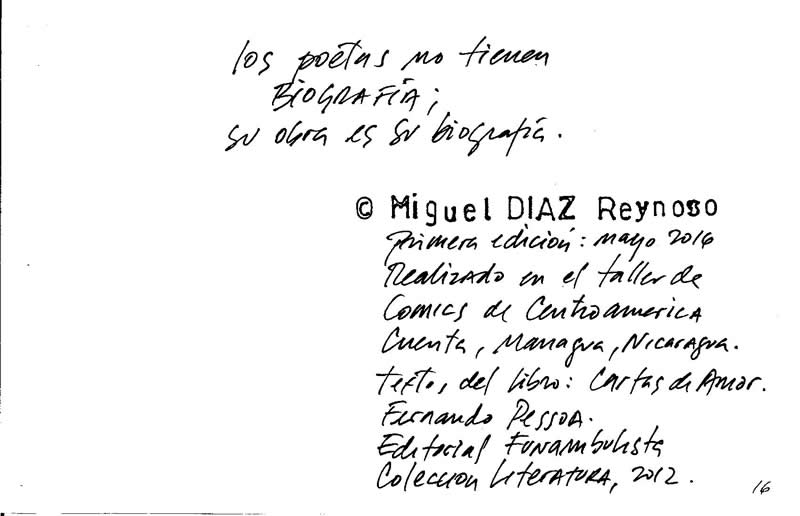 los poetas no tienen
BIOGRAFÍA;
su obra es su biografía.
© Miguel DIAZ Reynoso
primera edición: mayo 2016
Realizado en el taller de
Comics de Centroamerica
Cuenta, Managua, Nicaragua.
textos, del libro: Cartas de Amor.
Fernando Pessoa.
Editorial Funambulista
Coleccion Literatura, 2012.
16